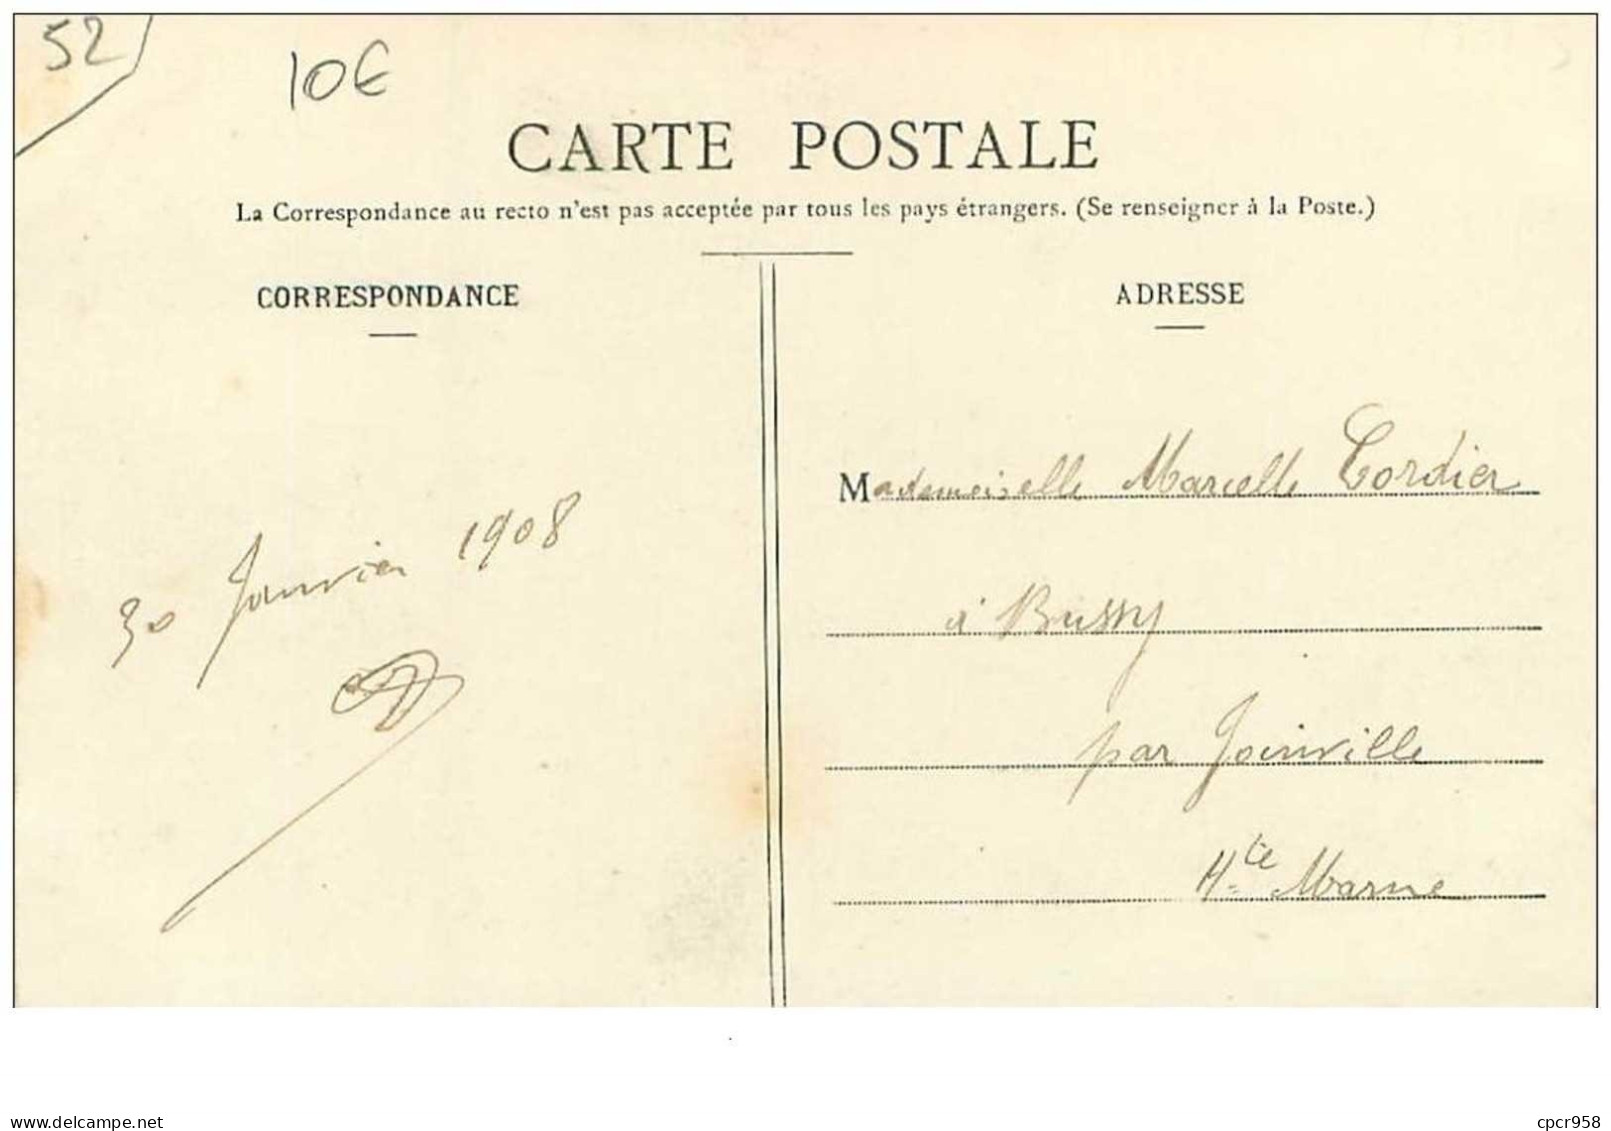 52
10€
CARTE POSTALE
La Correspondance au recto n'est pas acceptée par tous les pays étrangers. (Se renseigner à la Poste.)
CORRESPONDANCE
ADRESSE
30 Janvier 1908
Mademoiselle Marcelle Cordier
à Bussy
par Joinville
Hte Marne
www.delcampe.net
cpcr958